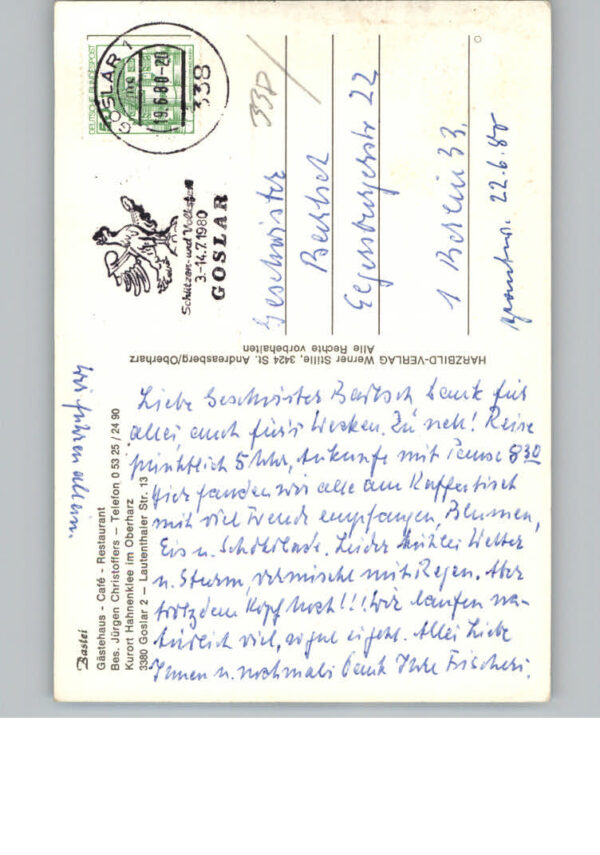 DEUTSCHE BUNDESPOST
GOSLAR 1
19.6.80-20
338
Schützen- und Volksfest
3.-14.7.1980
GOSLAR
338
Geschwister
Bartsch
Elgersburgerstr 22
1 Berlin 33.
22.6.80
HARZBILD-VERLAG Werner Stille, 3424 St. Andreasberg/Oberharz
Alle Rechte vorbehalten
Bastei
Gästehaus - Café - Restaurant
Bes. Jürgen Christoffers – Telefon 0 53 25 / 24 90
Kurort Hahnenklee im Oberharz
3380 Goslar 2 – Lautenthaler Str. 13
Liebe Geschwister Bartsch Dank für
alles, auch für's Wecken. Zu nett! Reise
pünktlich 5 Uhr, Ankunft mit Pause 8 30
Hier fanden wir alle am Kaffeetisch
mit viel Freude empfangen, Blumen,
Eis u. Schokolade. Leider kühles Wetter
u. Sturm, vermischt mit Regen. Aber
trotzdem Kopf hoch!!! Wir laufen na-
türlich viel, eigens. Alles Liebe
Ihnen u. nochmals Dank Ihre Fischers.
wir fuhren allein.